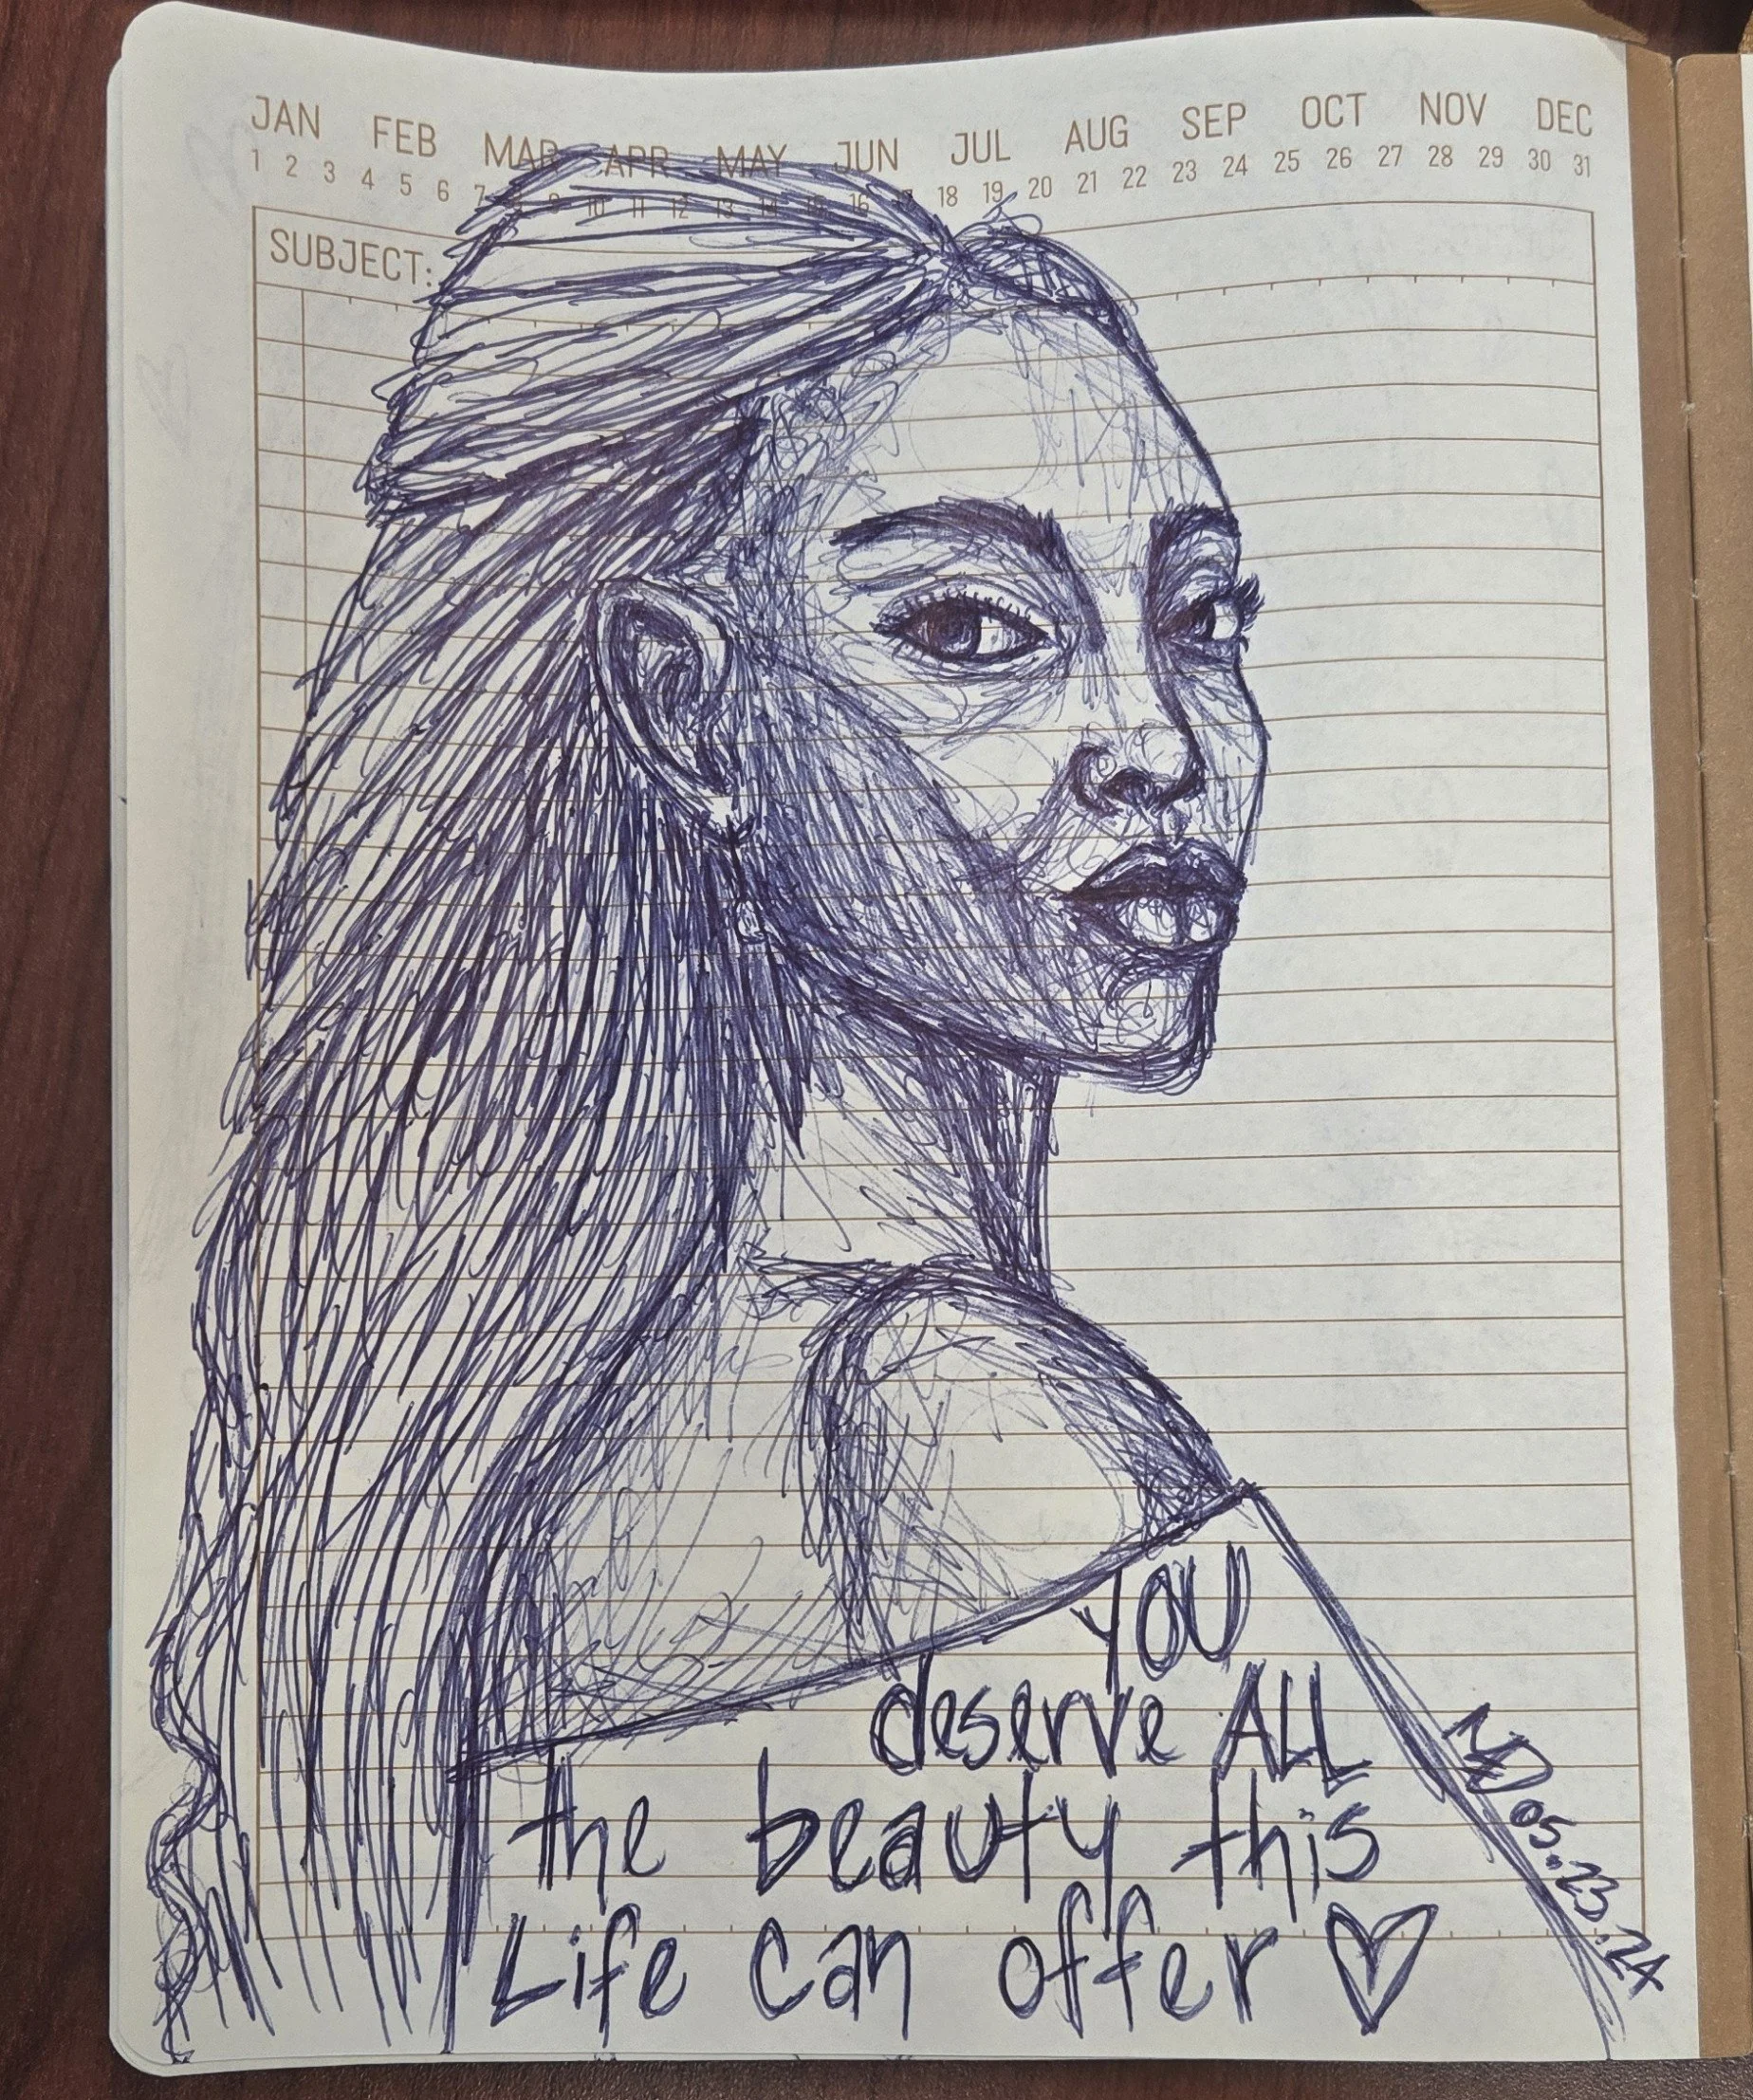 JAN FEB MAR APR MAY JUN JUL AUG SEP OCT NOV DEC
1 2 3 4 5 6 7 8 9 10 11 12 13 14 15 16 17 18 19 20 21 22 23 24 25 26 27 28 29 30 31
SUBJECT:
YOU
deserve ALL
the beauty this
Life can offer ♡
05.23.24